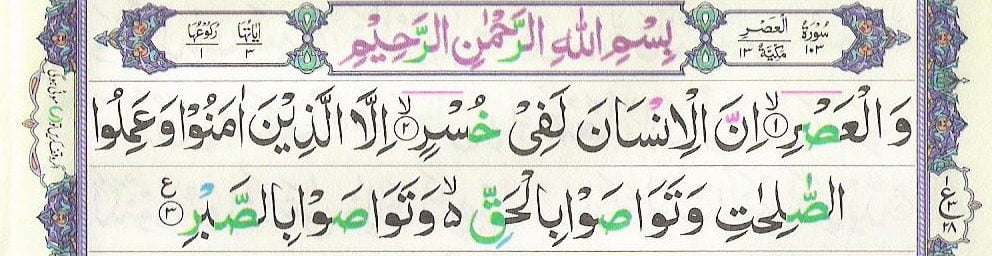 سُوْرَةُ الْعَصْرِ مَكِّيَّةٌ ١٠٣ ١٣
بِسْمِ اللّٰهِ الرَّحْمٰنِ الرَّحِيْمِ
اٰيَاتُهَا ٣ رُكُوْعُهَا ١
وَالْعَصْرِۙ﴿١﴾ اِنَّ الْاِنْسَانَ لَفِیْ خُسْرٍۙ﴿٢﴾ اِلَّا الَّذِیْنَ اٰمَنُوْا وَعَمِلُوا
الصّٰلِحٰتِ وَتَوَاصَوْا بِالْحَقِّ ۙ۬ وَتَوَاصَوْا بِالصَّبْرِ﴿٣﴾ ع
ع
٣
٢٨